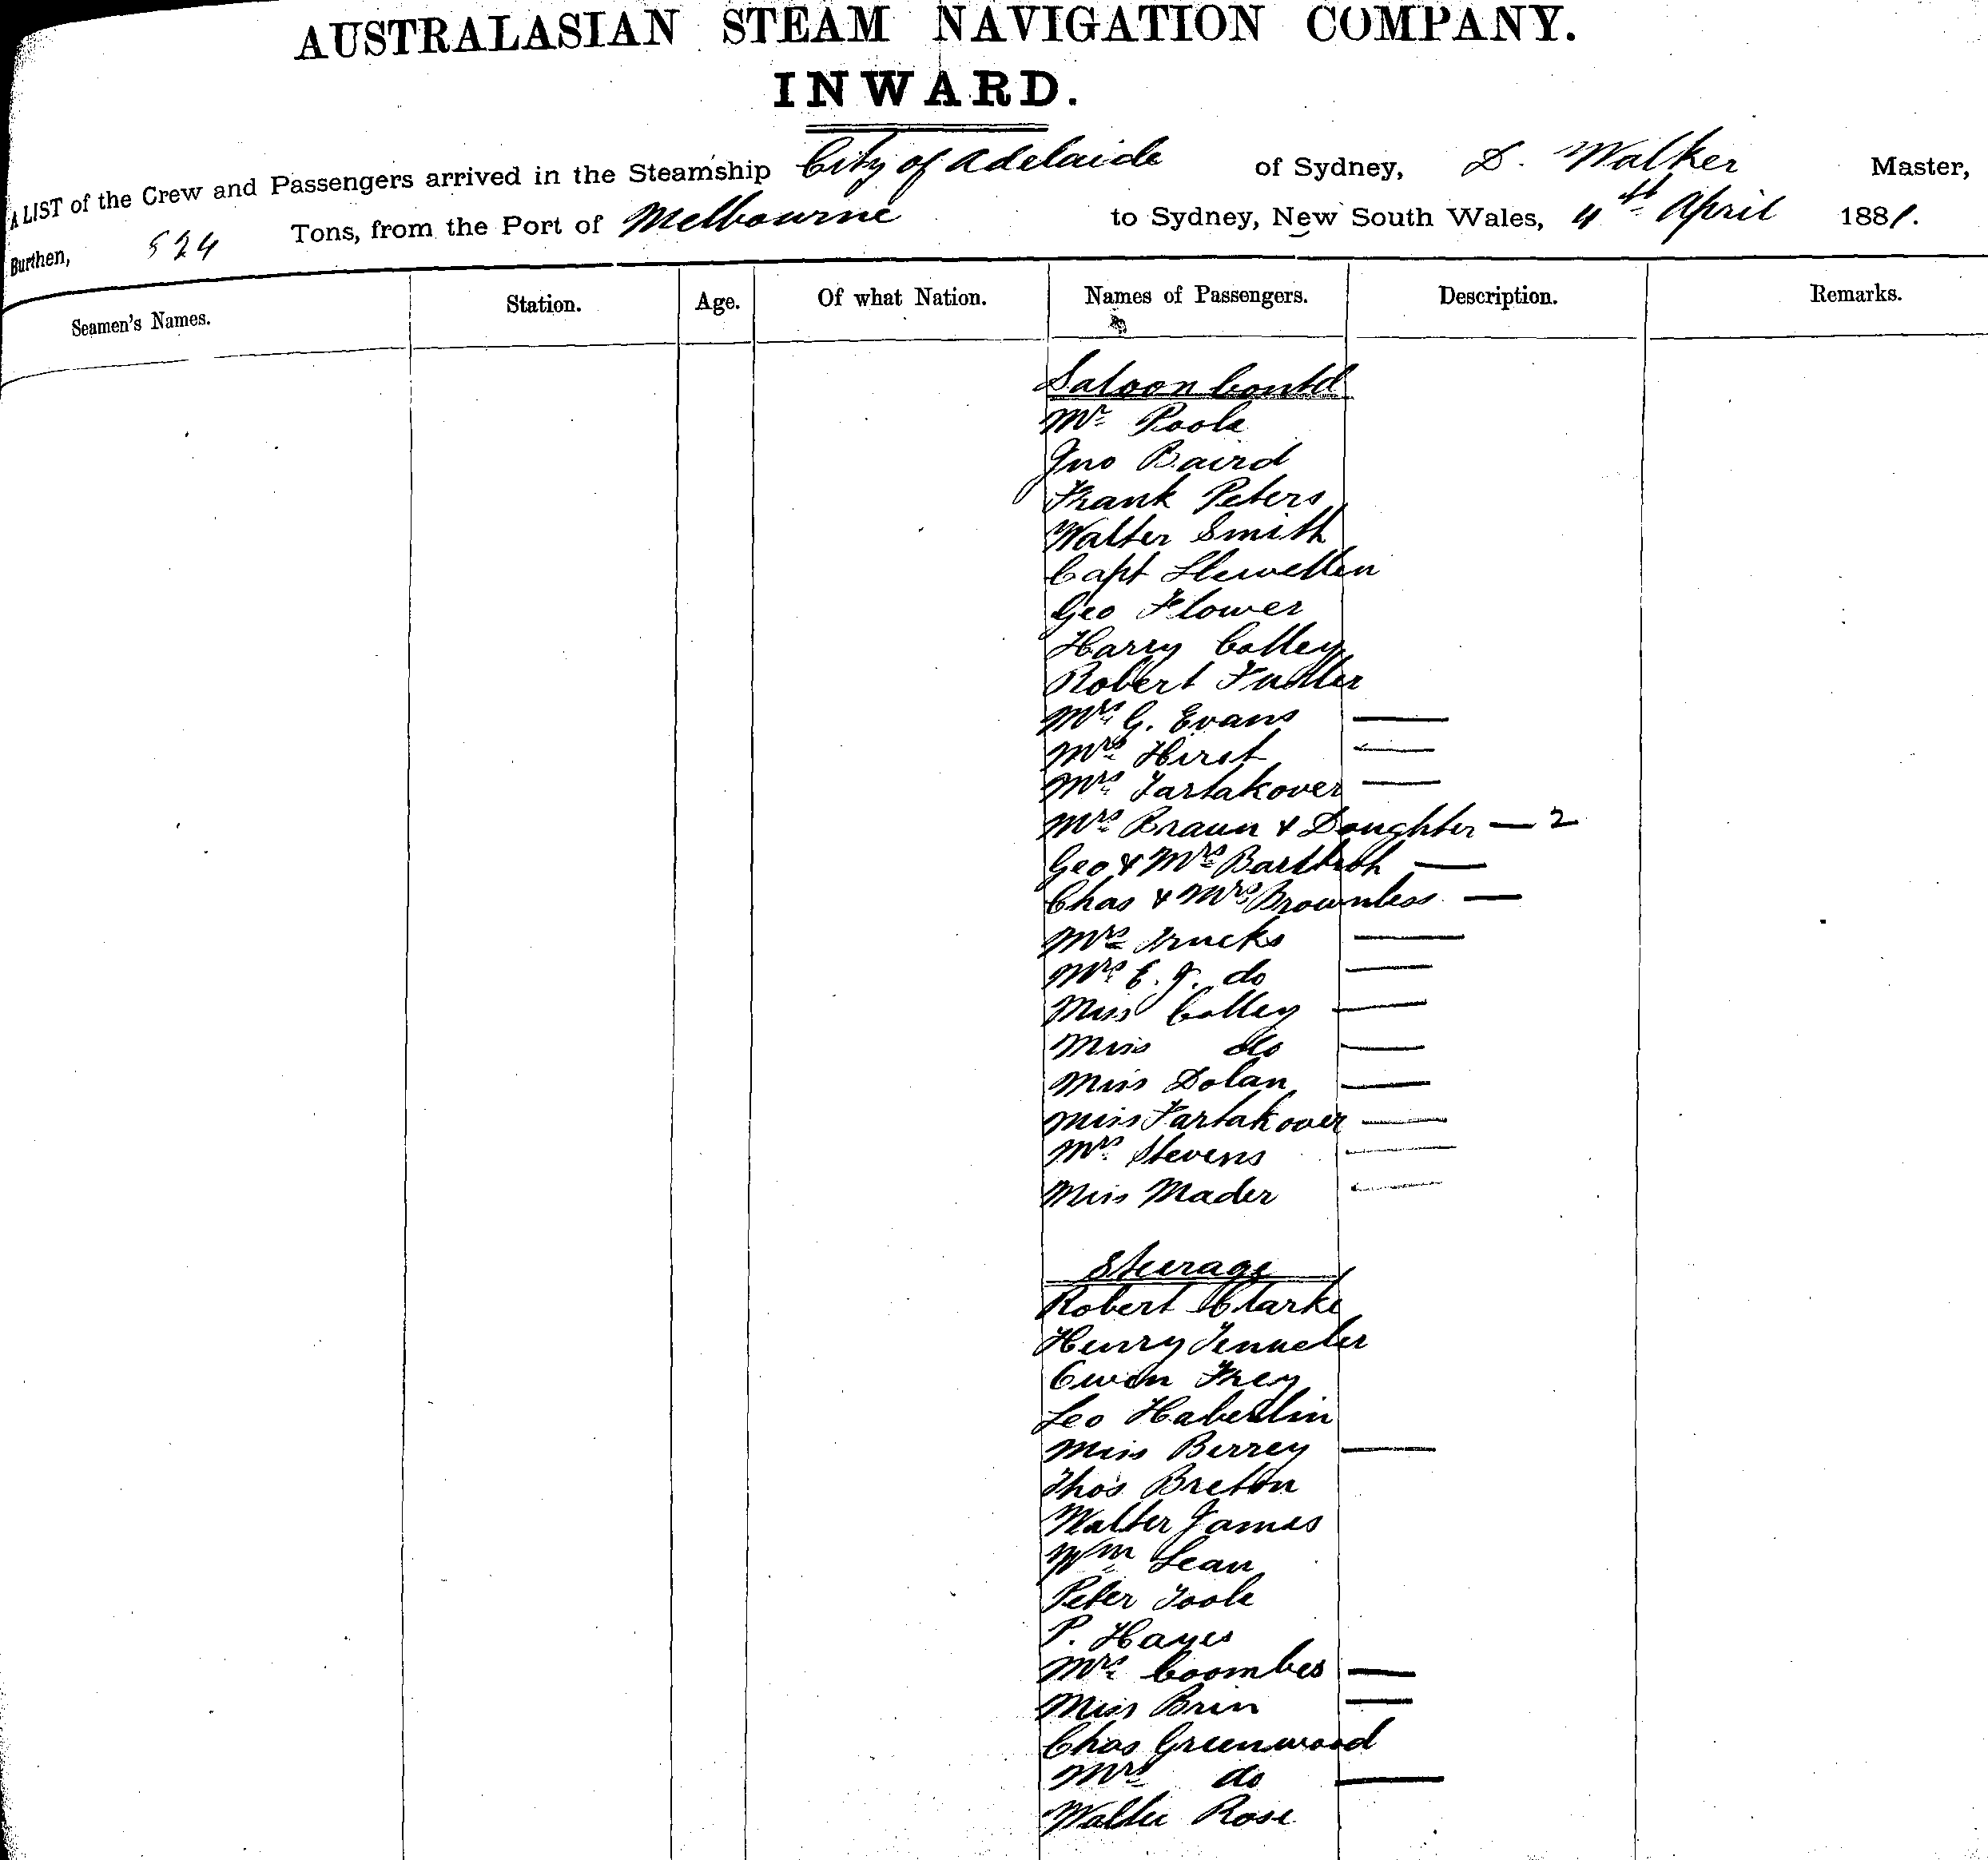 AUSTRALASIAN STEAM NAVIGATION COMPANY.
INWARD.
A LIST of the Crew and Passengers arrived in the Steamship City of Adelaide of Sydney, D. Walker Master,
Burthen, 524 Tons, from the Port of Melbourne to Sydney, New South Wales, 4th April 1881.
Seamen's Names. Station. Age. Of what Nation. Names of Passengers. Description. Remarks.
Saloon Contd
Mr Poole
Jno Baird
Frank Peters
Walter Smith
Capt Llewellen
Geo Flower
Harry Colley
Robert
Mrs G. Evans —
Mrs Hirst —
Mrs Tartakover —
Mrs Braun & Daughter — 2
Geo & Mrs —
Chas & Mrs Brownless —
Mrs Trucks —
Mrs E. J. do —
Miss Colley —
Miss do —
Miss Dolan —
Miss Tartakover —
Mrs Stevens —
Miss Mader —
Steerage
Robert Clarke
Henry
Owen Frey
Leo Haberlin
Miss Berrey —
Thos Breton
Walter James
Wm Lean
Peter Toole
P. Hayes
Mrs Coombes —
Miss Brin —
Chas Greenwood
Mrs do —
Walter Rose